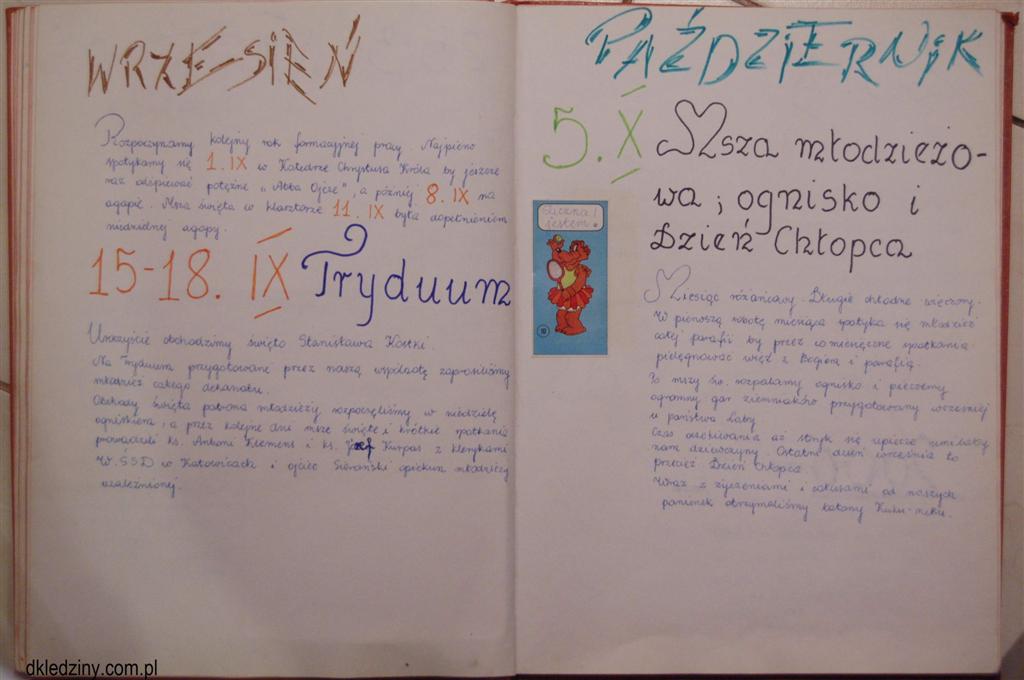 WRZE-SIEŃ
Rozpoczynamy kolejny rok formacyjnej pracy. Najpierw
spotykamy się 1. IX w Katedrze Chrystusa Króla by jeszcze
raz odśpiewać potężne „Abba Ojcze", a później 8. IX na
agapie. Msza święta w klasztorze 11. IX była dopełnieniem
niedzielnej agapy.
15-18. IX Tryduum
Uroczyście obchodzimy święto Stanisława Kostki.
Na Tryduum przygotowane przez naszą wspólnotę zaprosiliśmy
młodzież całego dekanatu.
Obchody święta patrona młodzieży rozpoczęliśmy w niedzielę
ogniskiem, a przez kolejne dni msze święte i krótkie spotkania
prowadzili ks. Antoni Klemens i ks. Józef Kurpas z klerykami
W.ŚSD w Katowicach i ojciec opiekun młodzieży
uzależnionej.
PAŹDZIERNiK
5. X Msza młodzieżo-
wa ; ognisko i
Dzień Chłopca
Śliczna
jestem.
10
Miesiąc różańcowy. Długie chłodne wieczory.
W pierwszą sobotę miesiąca spotyka się młodzież
całej parafii by przez comiesięczne spotkania
pielęgnować więź z Bogiem i parafią.
Po mszy św. rozpalamy ognisko i pieczemy
ogromny gar ziemniaków przygotowany wcześniej
u państwa
Czas oczekiwania aż się upiecze umilały
nam dziewczyny. Ostatni dzień września to
przecież Dzień Chłopca.
Wraz z życzeniami i całusami od naszych
panienek otrzymaliśmy batony Kuku-ruku.
dkledziny.com.pl